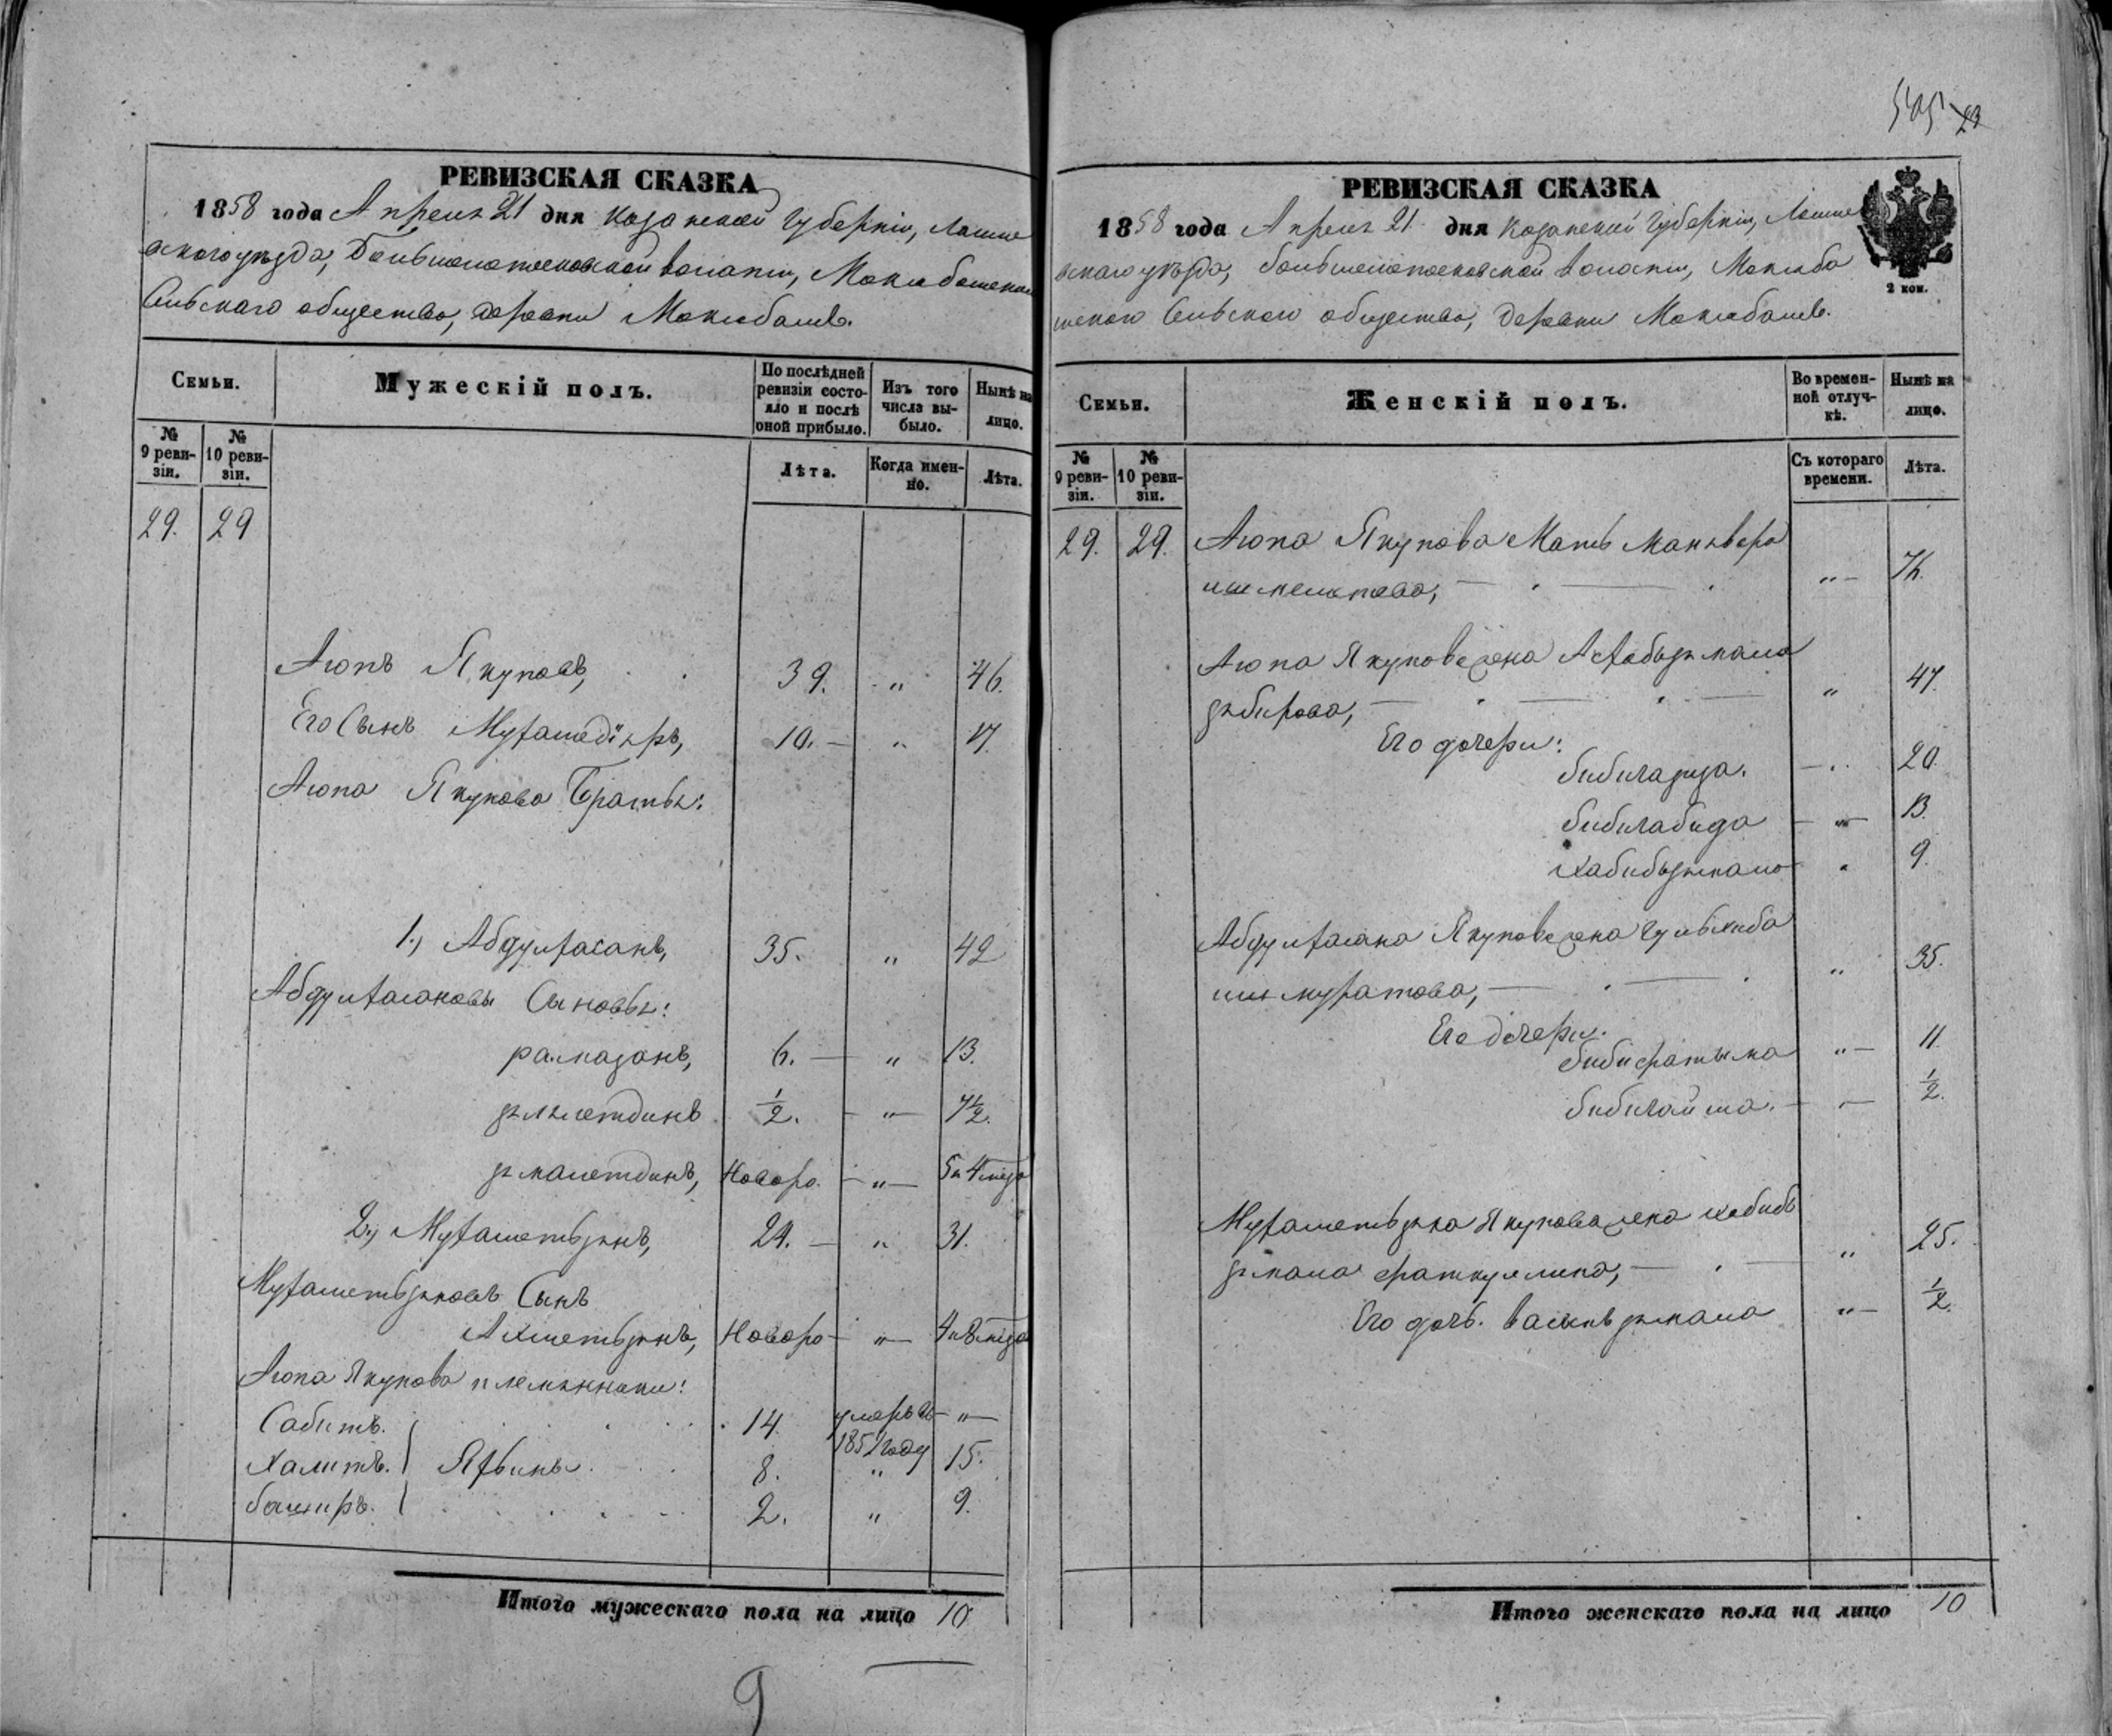 РЕВИЗСКАЯ СКАЗКА
1858 года Апреля 21 дня Казанской Губерніи, Лаише
вскаго уѣзда, Волости,
Сельскаго общества, деревни
Семьи.
Мужескій полъ.
По послѣдней ревизіи состояло и послѣ оной прибыло.
Изъ того числа выбыло.
Нынѣ на лицо.
№ 9 ревизіи.
№ 10 ревизіи.
Лѣта.
Когда именно.
Лѣта.
29. 29
Аюпъ Якуповъ, 39. „ 46.
Его Сынъ 10. „ 17.
Аюпа Якупова Братья:
1., Абдулхасанъ, 35. „ 42
Абдулхасановы Сыновья:
рамазанъ, 6. „ 13.
зялялетдинъ ½. „ 7½.
зямалетдинъ, Новоро. „ 5 и 4 мѣся
2., Мухаметьзянъ, 24. „ 31.
Мухаметьзяновъ Сынъ
Ахметьзянъ, Новоро „ 4 и 8 мѣся
Аюпа Якупова племянники:
Сабитъ. 14. умеръ въ 1851 году „
Халитъ. Яхьины 8. „ 15.
баширъ. 2. „ 9.
Итого мужескаго пола на лицо 10
9
23
РЕВИЗСКАЯ СКАЗКА
1858 года Апреля 21 дня Казанской Губерніи, Лаише
вскаго уѣзда, волости,
Сельскаго общества, деревни
2 коп.
Семьи.
Женскій полъ.
Во временной отлучкѣ.
Нынѣ на лицо.
№ 9 ревизіи.
№ 10 ревизіи.
Съ котораго времени.
Лѣта.
29. 29. Аюпа Якупова Мать
„
Аюпа Якупова жена
зябирова, „ 47.
Его дочери:
20.
бибигабида „ 13.
хабибьзямало „ 9.
Абдулхасана Якупова жена Гульхиба
ишмуратова, „ 35.
Его дочери:
бибифатыма „ 11.
бибигайша. „ ½.
Мухаметьзяна Якупова жена хабибь
зямала фаткуллина, „ 25.
Его дочь. „ ½.
Итого женскаго пола на лицо 10